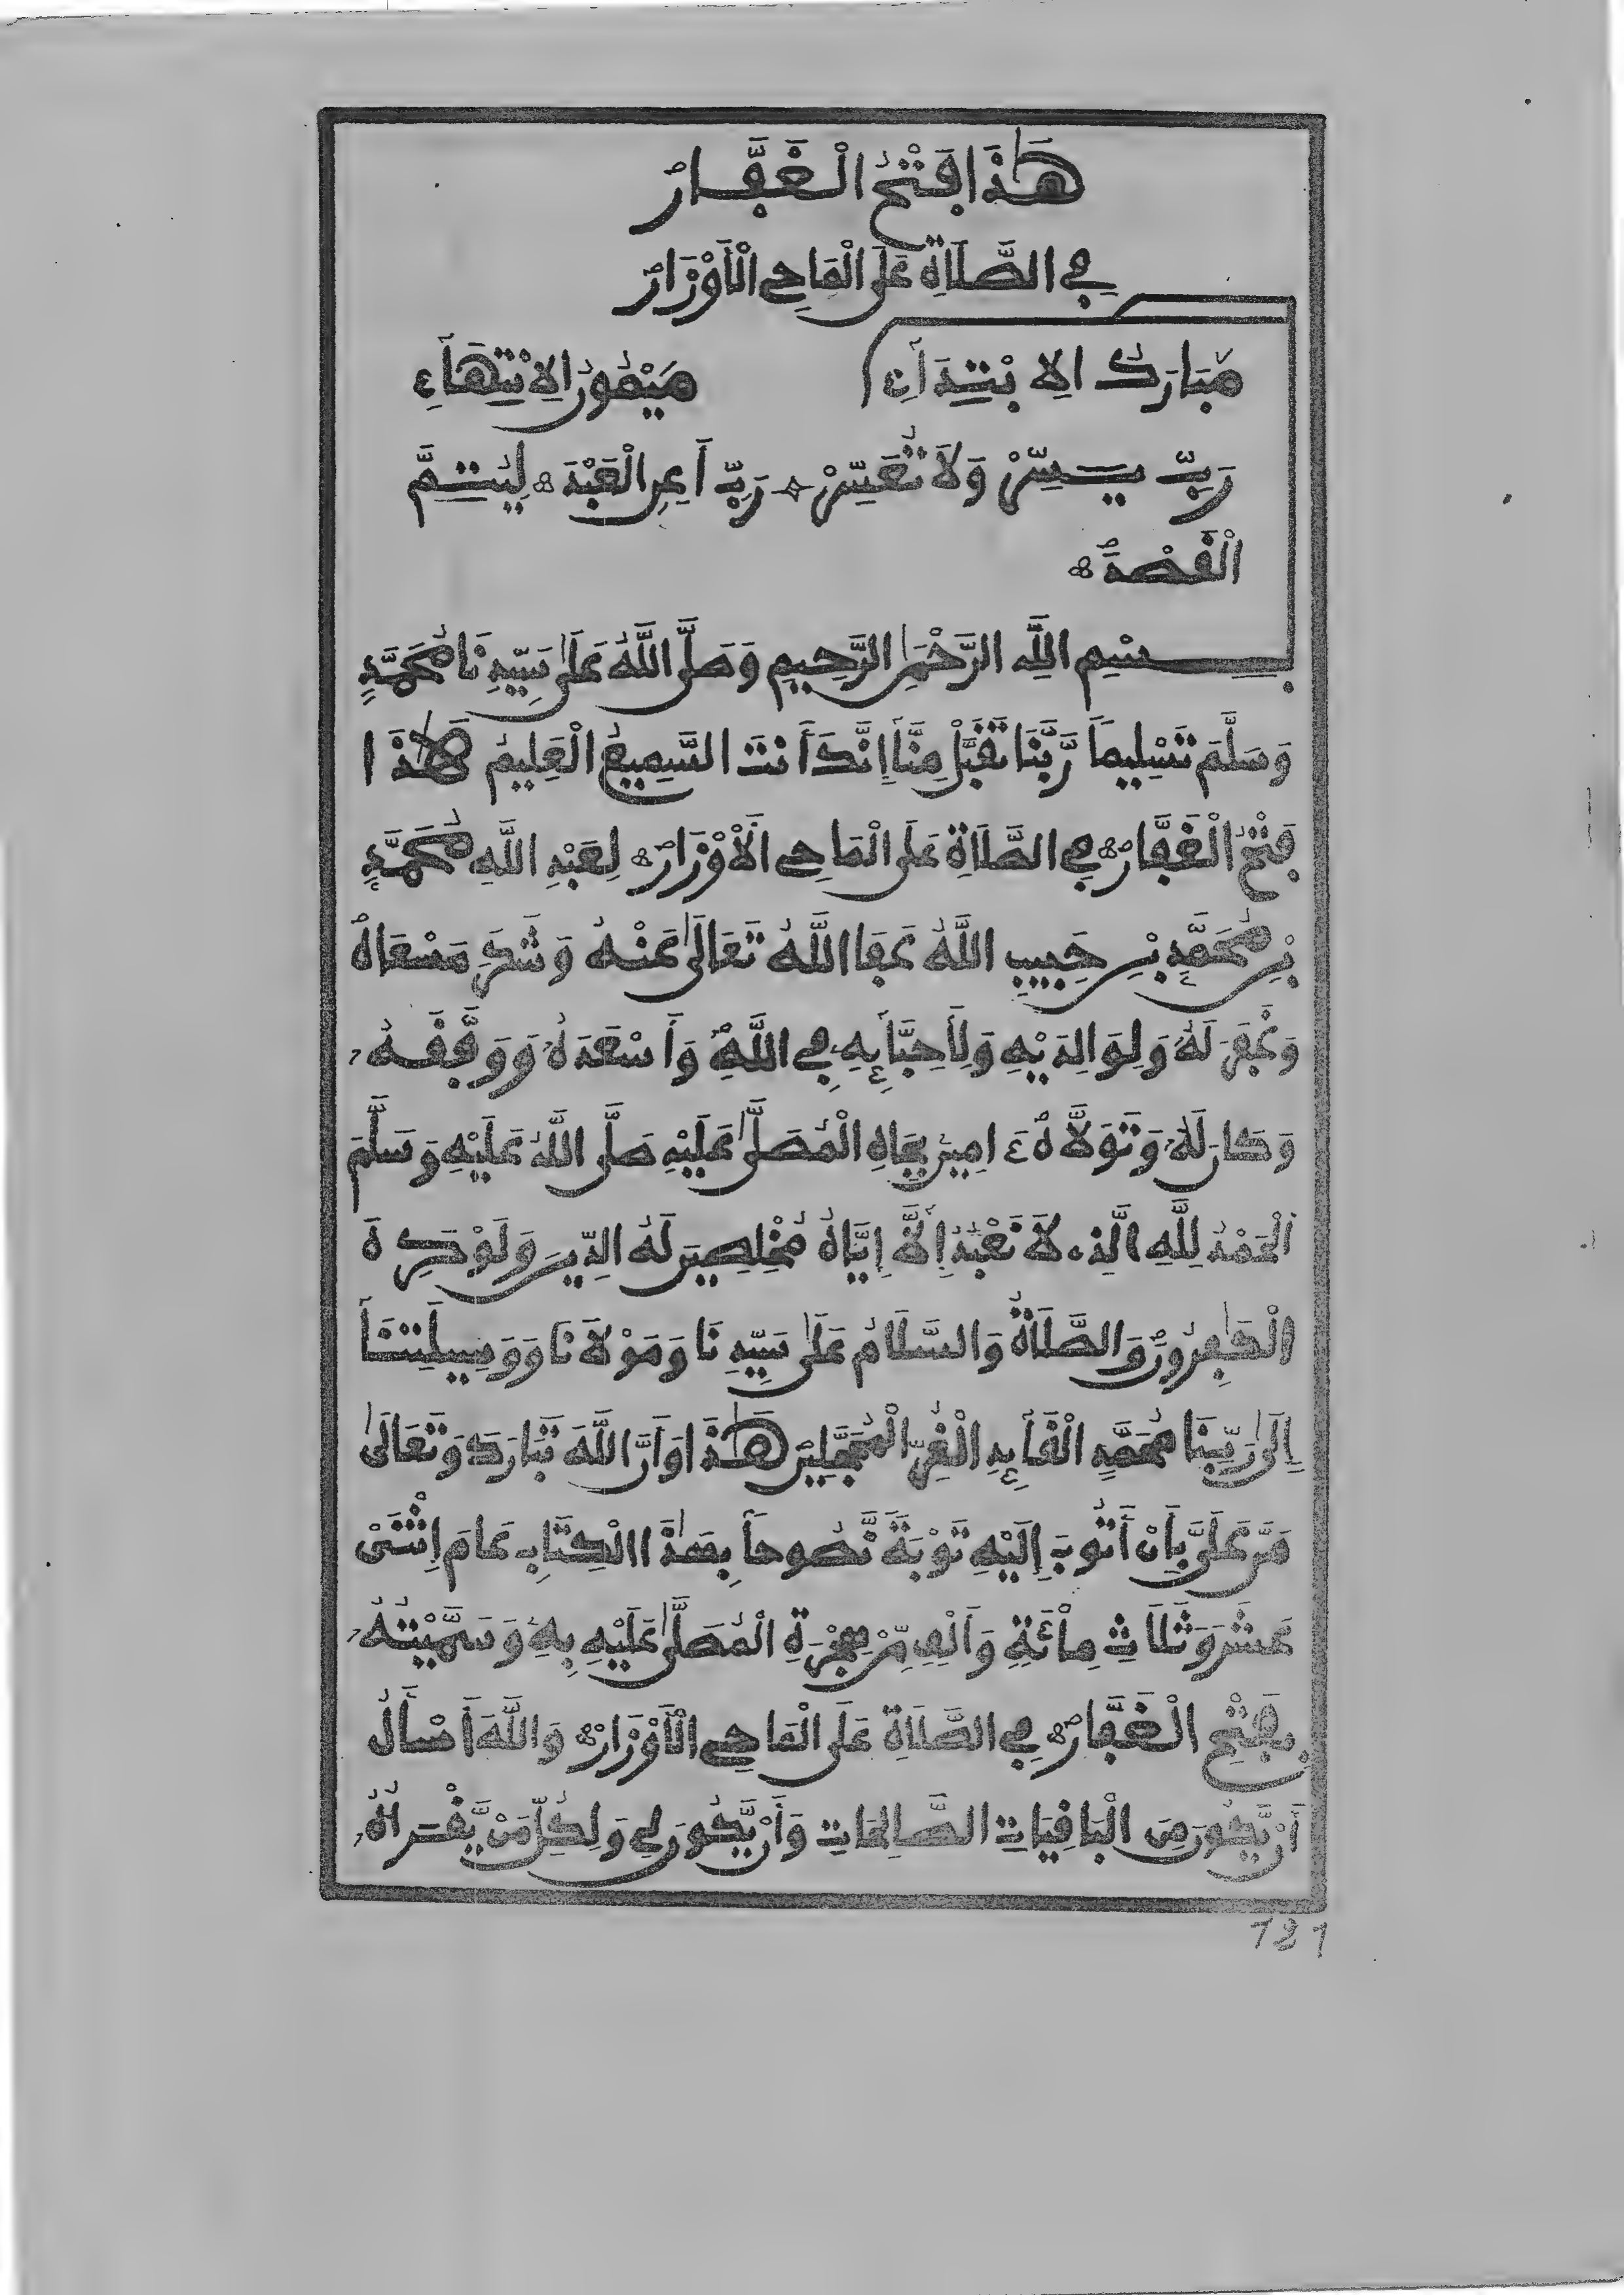 هَٰذَا فَتْحُ الْغَفَّارْ
فِي الصَّلَاةِ عَلَى الْمَاحِي الْأَوْزَارْ
مُبَارَكُ الِابْتِدَاءِ مَيْمُونُ الِانْتِهَاءِ
رَبِّ يَسِّرْ وَلَا تُعَسِّرْ رَبِّ أَعِنِ الْعَبْدَ لِيُتِمَّ
الْقَصْدَ
بِسْمِ اللَّهِ الرَّحْمَٰنِ الرَّحِيمِ وَصَلَّى اللَّهُ عَلَىٰ سَيِّدِنَا مُحَمَّدٍ
وَسَلَّمَ تَسْلِيماً رَّبَّنَا تَقَبَّلْ مِنَّا إِنَّكَ أَنتَ السَّمِيعُ الْعَلِيمُ هَٰذَا
فَتْحُ الْغَفَّارْ فِي الصَّلَاةِ عَلَى الْمَاحِي الْأَوْزَارْ لِعَبْدِ اللَّهِ مُحَمَّدِ
بْنِ مُحَمَّدِ بْنِ حَبِيبِ اللَّهُ عَفَا اللَّهُ تَعَالَىٰ عَنْهُ وَشَكَرَ مَسْعَاهُ
وَغَفَرَ لَهُ وَلِوَالِدَيْهِ وَلِأَحِبَّائِهِ فِي اللَّهِ وَأَسْعَدَهُ وَوَفَّقَهُ
وَكَانَ لَهُ وَتَوَلَّاهُ ءَامِينَ بِجَاهِ الْمُصَلَّىٰ عَلَيْهِ صَلَّى اللَّهُ عَلَيْهِ وَسَلَّمَ
الْحَمْدُ لِلَّهِ الَّذِي لَا نَعْبُدُ إِلَّا إِيَّاهُ مُخْلِصِينَ لَهُ الدِّينَ وَلَوْ كَرِهَ
الْكَٰفِرُونَ وَالصَّلَاةُ وَالسَّلَامُ عَلَىٰ سَيِّدِنَا وَمَوْلَانَا وَوَسِيلَتِنَا
إِلَىٰ رَبِّنَا مُحَمَّدٍ الْقَائِدِ الْغُرِّ الْمُحَجَّلِينَ هَٰذَا وَأَنَّ اللَّهَ تَبَارَكَ وَتَعَالَىٰ
مَنَّ عَلَيَّ بِأَنْ أَتُوبَ إِلَيْهِ تَوْبَةً نَّصُوحاً بِهَٰذَا الْكِتَابِ عَامَ إِثْنَىْ
عَشَرَ وَثَلَاثِ مِائَةٍ وَأَلْفٍ مِّنْ هِجْرَةِ الْمُصَلَّىٰ عَلَيْهِ بِهِ وَسَمَّيْتُهُ
بِفَتْحِ الْغَفَّارْ فِي الصَّلَاةِ عَلَى الْمَاحِي الْأَوْزَارْ وَاللَّهَ أَسْأَلُ
أَنْ يَّكُونَ مِنَ الْبَاقِيَاتِ الصَّالِحَاتِ وَأَنْ يَّكُونَ لِي وَلِكُلِّ مَنْ يَّقْرَأُهُ
121